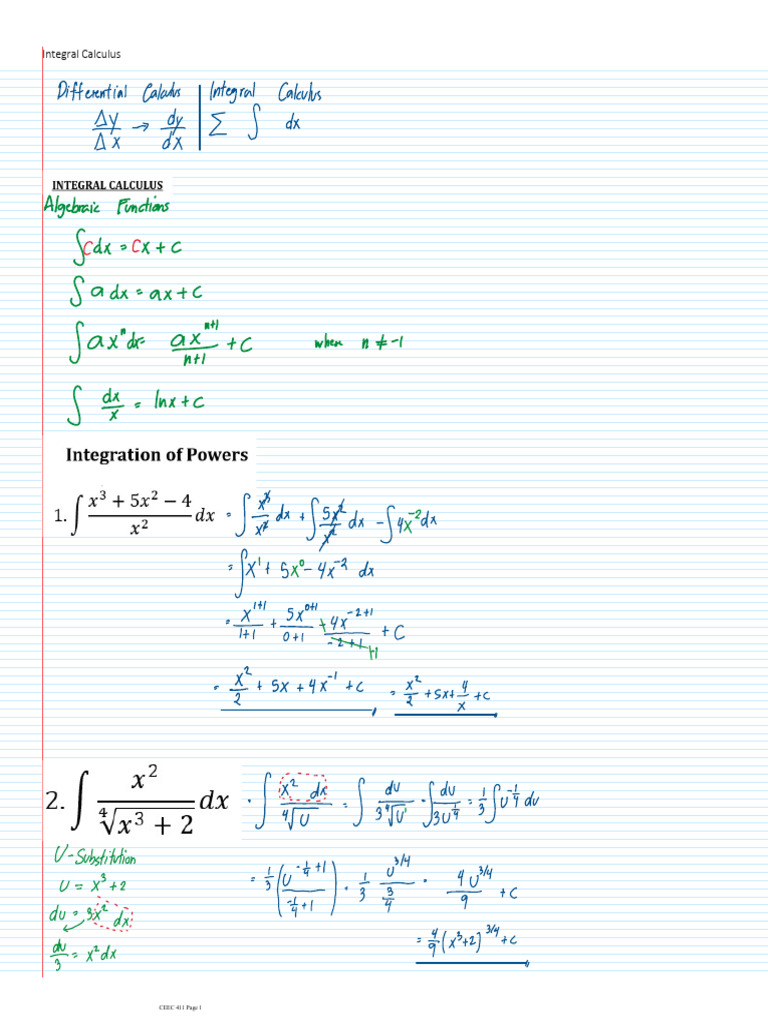 Integral Calculus
Differential Calculus | Integral Calculus
Δy/Δx → dy/dx | Σ ∫ dx
INTEGRAL CALCULUS
Algebraic Functions
∫Cdx = Cx + C
∫a dx = ax + C
∫ax^n dx = ax^(n+1)/(n+1) + C when n ≠ -1
∫ dx/x = lnx + C
Integration of Powers
1. ∫ (x³ + 5x² − 4)/x² dx = ∫ x³/x² dx + ∫ 5x²/x² dx − ∫4x⁻² dx
= ∫x¹ + 5x⁰ − 4x⁻² dx
= x^(1+1)/(1+1) + 5x^(0+1)/(0+1) + 4x^(−2+1)/(−2+1) +1 + C
= x²/2 + 5x + 4x⁻¹ + C, = x²/2 + 5x + 4/x + C
2. ∫ x²/∜(x³ + 2) dx = ∫ x² dx/∜U = ∫ du/(3∜U) = ∫ du/(3U^(1/4)) = 1/3 ∫U^(-1/4) du
U-Substitution
U = x³+2
du = 3x² dx
du/3 = x² dx
= 1/3 (U^(-1/4+1)/(-1/4+1)) = 1/3 U^(3/4)/(3/4) = 4U^(3/4)/9 + C
= 4/9 (x³+2)^(3/4) + C
CEEC 411 Page 1